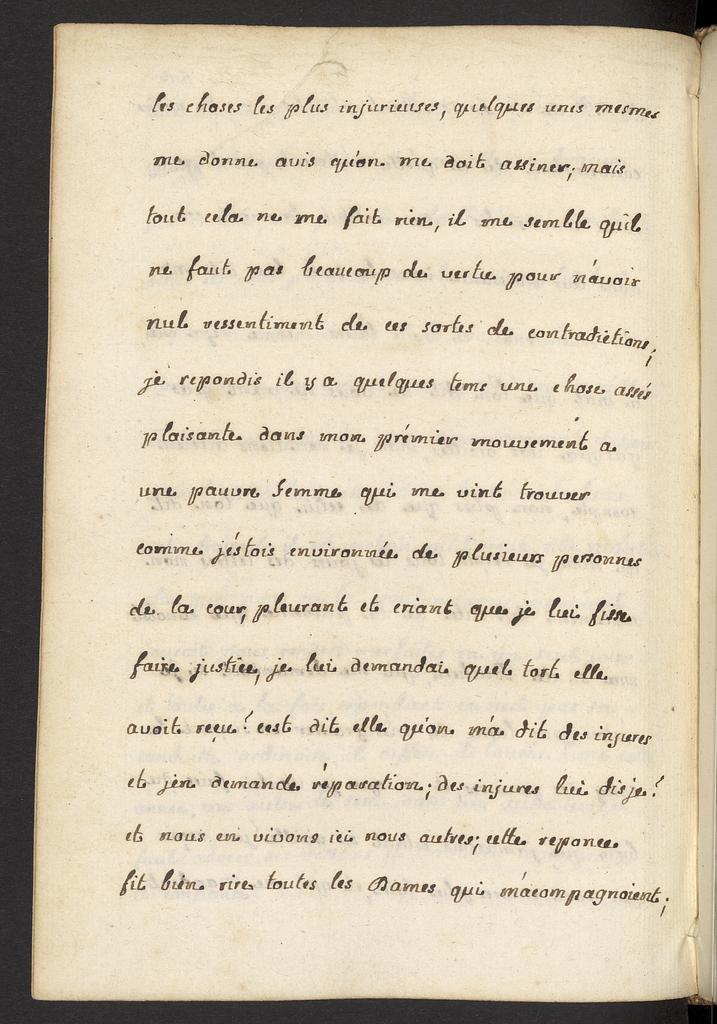 les choses les plus injurieuses, quelques unes mesmes
me donne avis qu'on me doit assiner; mais
tout cela ne me fait rien, il me semble qu'il
ne faut pas beaucoup de vertu pour n'avoir
nul ressentiment de ces sortes de contradictions;
je repondis il y a quelques tems une chose assés
plaisante dans mon prémier mouvement a
une pauvre femme qui me vint trouver
comme j'éstois environnée de plusieurs personnes
de la cour, pleurant et criant que je lui fisse
faire justice, je lui demandai quel tort elle
avoit reçu? c'est dit elle qu'on m'a dit des injures
et j'en demande réparation; des injures lui dis je?
et nous en vivons ici nous autres; cette reponce
fit bien rire toutes les Dames qui m'acompagnoient;